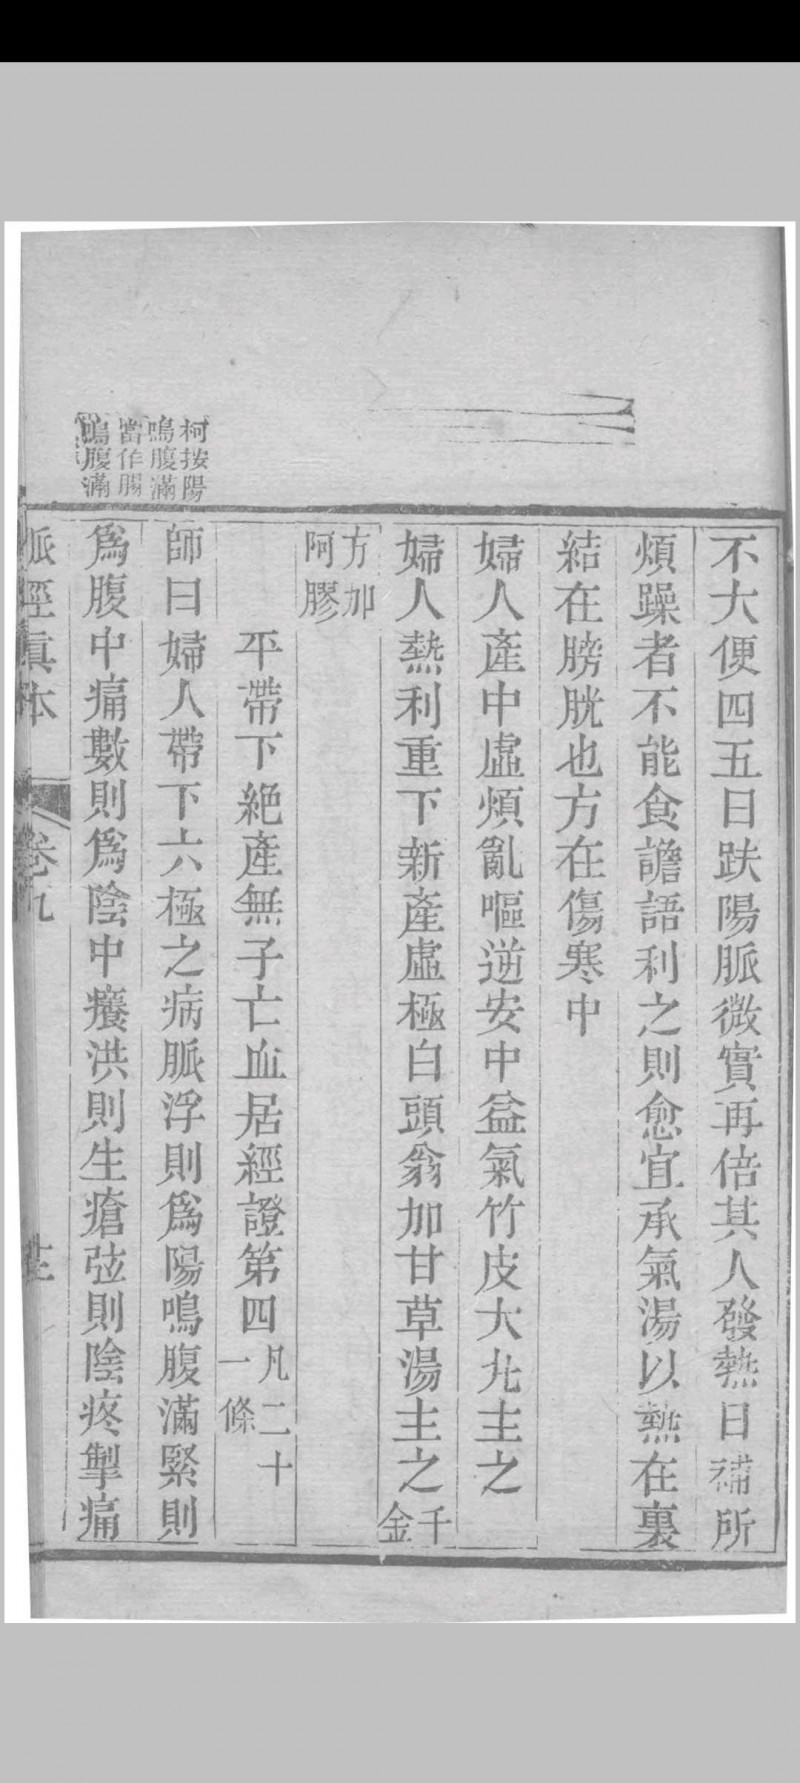 柯按陽
鳴腹滿
當作腸
鳴腹滿
不大便四五日趺陽脈微實再倍其人發熱日晡所
煩躁者不能食譫語利之則愈宜承氣湯以熱在裏
結在膀胱也方在傷寒中
婦人產中虛煩亂嘔逆安中益氣竹皮大丸主之
婦人熱利重下新產虛極白頭翁加甘草湯主之千金
方加阿膠
平帶下絕產無子亡血居經證第四凡二十一條
師曰婦人帶下六極之病脈浮則爲陽鳴腹滿緊則
爲腹中痛數則爲陰中癢洪則生瘡弦則陰疼掣痛
脈經真本 卷九